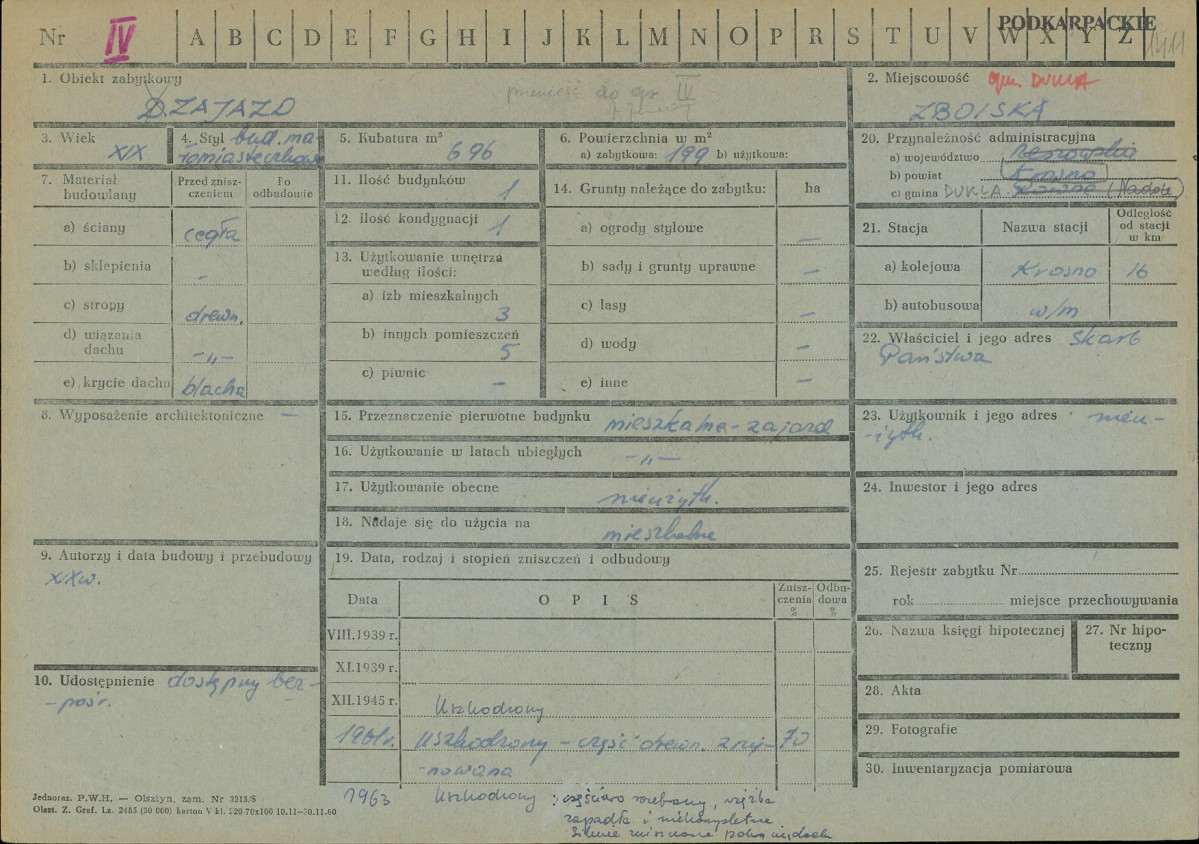 Nr IV A B C D E F G H I J K L M N O P R S T U V W X Y Z
PODKARPACKIE
1. Obiekt zabytkowy
D. ZAJAZD
przenieść do gr. IV
2. Miejscowość gm. DUKLA
ZBOISKA
3. Wiek
XIX
4. Styl bud. ma-
łomiasteczkowe
5. Kubatura m³
696
6. Powierzchnia w m²
a) zabytkowa: 199 b) użytkowa:
7. Materiał
budowlany
Przed znisz-
czeniem
Po
odbudowie
a) ściany cegła
b) sklepienia -
c) stropy drewn.
d) wiązania
dachu -„-
e) krycie dachu blacha
8. Wyposażenie architektoniczne —
9. Autorzy i data budowy i przebudowy
XIX w.
10. Udostępnienie dostępny bez-
-pośr.
11. Ilość budynków 1
12. ilość kondygnacji 1
13. Użytkowanie wnętrza
według ilości:
a) izb mieszkalnych
3
b) innych pomieszczeń
5
c) piwnic -
14. Grunty należące do zabytku: ha
a) ogrody stylowe —
b) sady i grunty uprawne —
c) lasy —
d) wody —
e) inne —
15. Przeznaczenie pierwotne budynku mieszkalne - zajazd
16. Użytkowanie w latach ubiegłych -„-
17. Użytkowanie obecne nieużytk.
18. Nadaje się do użycia na mieszkalne
19. Data, rodzaj i stopień zniszczeń i odbudowy
Data OPIS Znisz-
czenia
% Odbu-
dowa
%
VIII.1939 r.
XI.1939 r.
XII.1945 r. Uszkodzony
1961r. Uszkodzony - część drewn. zruj- 70
-nowana
1963 Uszkodzony : częściowo rozebrany, więźba
zapadła i niekompletna
silnie zniszczone
20. Przynależność administracyjna
a) województwo rzeszowskie
b) powiat Krosno
c) gmina DUKLA Równe (Nadole)
21. Stacja Nazwa stacji Odległość
od stacji
w km
a) kolejowa Krosno 16
b) autobusowa w/m
22. Właściciel i jego adres Skarb
Państwa
23. Użytkownik i jego adres nieu-
-żytk.
24. Inwestor i jego adres
25. Rejestr zabytku Nr
rok miejsce przechowywania
26. Nazwa księgi hipotecznej
27. Nr hipo-
teczny
28. Akta
29. Fotografie
30. Inwentaryzacja pomiarowa
Jednoraz. P.W.H. — Olsztyn, zam. Nr 3215/S
Olszt. Z. Graf. Lz. 2455 (30 000) karton V kl. 220 70x100 10.11—30.11.60